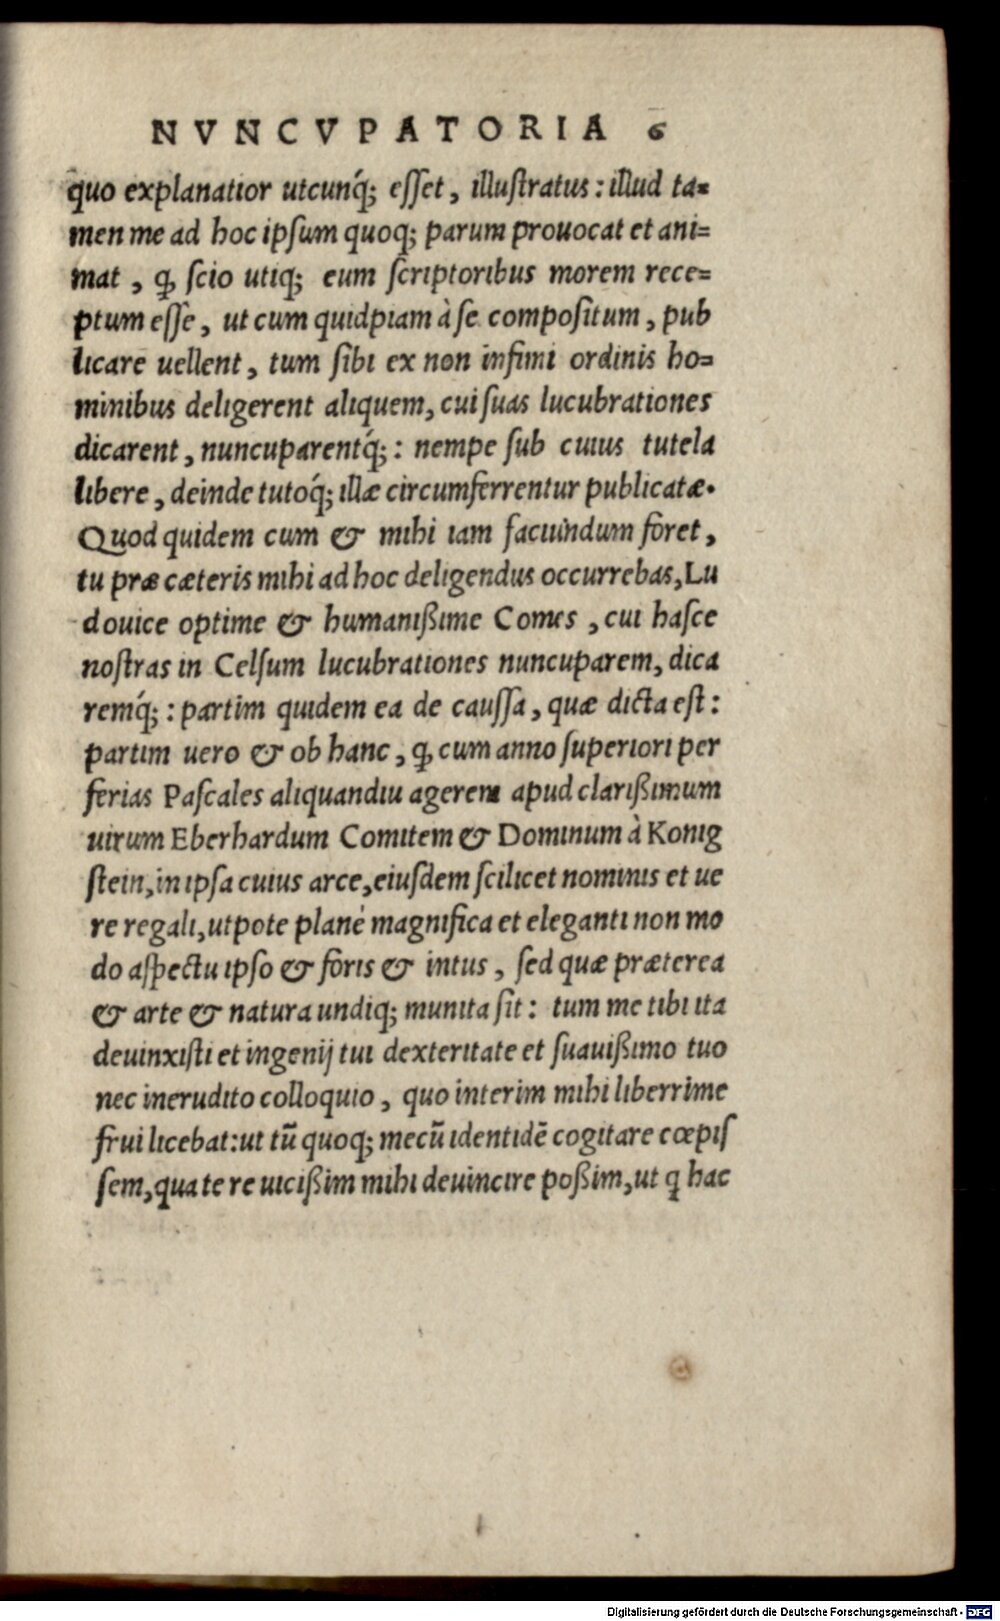 NVNCVPATORIA 6
quo explanatior utcunq́; eſſet, illuſtratus: illud ta=
men me ad hoc ipſum quoq; parum prouocat et ani=
mat, ꝙ ſcio utiq; eum ſcriptoribus morem rece=
ptum eſſe, ut cum quidpiam à ſe compoſitum, pub
licare uellent, tum ſibi ex non infimi ordinis ho=
minibus deligerent aliquem, cui ſuas lucubrationes
dicarent, nuncuparentq́;: nempe ſub cuius tutela
libere, deinde tutoq́; illæ circumferrentur publicatæ.
Quod quidem cum & mihi iam faciundum foret,
tu præ cæteris mihi ad hoc deligendus occurrebas, Lu
douice optime & humanißime Comes, cui haſce
noſtras in Celſum lucubrationes nuncuparem, dica
remq́;: partim quidem ea de cauſſa, quæ dicta eſt:
partim uero & ob hanc, ꝙ cum anno ſuperiori per
ferias Paſcales aliquandiu agerem apud clarißimum
uirum Eberhardum Comitem & Dominum à Konig
ſtein, in ipſa cuius arce, eiuſdem ſcilicet nominis et ue
re regali, utpote planè magnifica et eleganti non mo
do aſpectu ipſo & foris & intus, ſed quæ præterea
& arte & natura undiq; munita ſit: tum me tibi ita
deuinxiſti et ingenij tui dexteritate et ſuauißimo tuo
nec inerudito colloquio, quo interim mihi liberrime
frui licebat: ut tũ quoq; mecũ identidẽ cogitare cœpiſ
ſem, qua te re uicißim mihi deuincire poßim, ut ꝗ hac
Digitalisierung gefördert durch die Deutsche Forschungsgemeinschaft - DFG